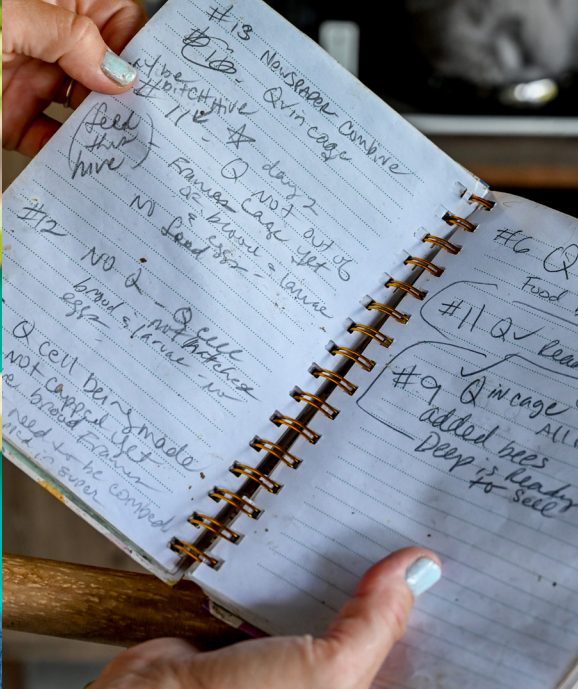 #13 Newspaper Combine
Q✓ in cage
BITCH HIVE
#11 - ☆ day 2
(feed
this
hive)
Q NOT out of
Cage yet
Frames
of brood & larvae
& eggs -
NO food
#12
NO Q - Q cell
not hatched
brood & larvae - no
eggs -
Q cell being made
NOT capped yet
brood Frames
need to be combed
in super
#6 Q
Food
#11 Q✓
#9 Q in cage
added bees
Deep is Ready
to sell